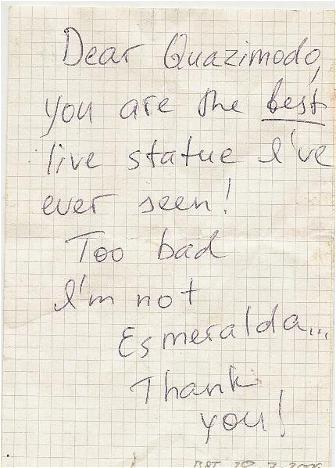 Dear Quazimodo,
you are the best
live statue I've
ever seen!
Too bad
I'm not
Esmeralda...
Thank
you!